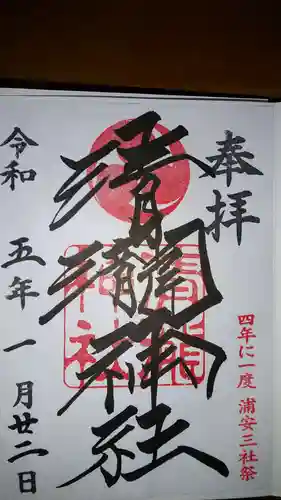 奉拝
四年に一度 浦安三社祭
清瀧神社
令和五年一月廿二日